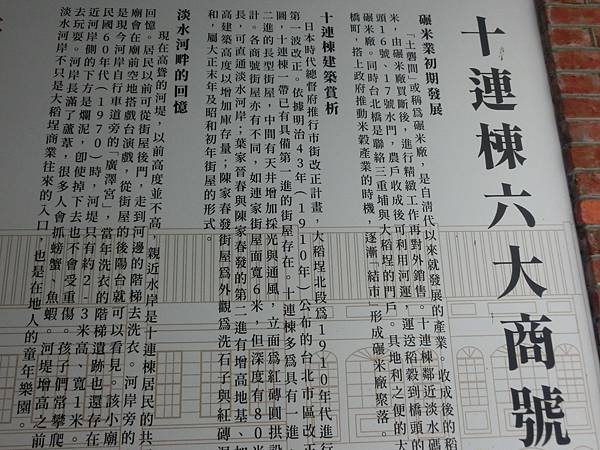 十連棟六大商號
碾米業初期發展
「土礱間」或稱為碾米廠，是自清代以來就發展的產業。收成後的稻
米，由碾米廠買斷後，進行精緻工作再對外銷售。十連棟鄰近淡水碼
頭16號、17號水門，農戶收成後可利用河運，運送稻穀到橋頭的
碾米廠。同時台北橋是聯絡三重埔與大稻埕的門戶。具地利之便的大
橋町，搭上政府推動米穀產業的時機，逐漸「結市」形成碾米廠聚落。
十連棟建築賞析
日本時代總督府推行市街改正計畫，大稻埕北段為1910年代進行
第一波改正。依據明治43年（1910年）公布的台北市區改正
圖，十連棟一帶已有具備第一進的街屋存在。十連棟多為具有一進、
二進的長型街屋，中間有天井增加採光與通風，立面為紅磚圓拱設
計。各商號街屋亦有不同，如連家街屋面寬6米，但深度有80米
長，可直通淡水河岸；葉家晉春與陳家春發的第二進有增高地基、加
高建築高度以增加庫存量；陳家春發街屋為外觀為洗石子與紅磚混
和，屬大正末年及昭和初年街屋的形式。
淡水河畔的回憶
現在高聳的河堤，以前高度並不高，親近水岸是十連棟居民的共
回憶。居民以前可從街屋後門，走到河邊的階梯去洗衣。河岸旁的
廟會在廟前空地搭戲台演戲，從街屋的後陽台就可以看見。該小廟
是現今河岸自行車道旁的「廣澤宮」，當年洗衣的階梯遺跡也還存在
民國60年代（1970）時，河堤只有約2-3米高、寬1米。
近河岸側的下方是爛泥，即使掉下去也不會受重傷。孩子們常攀爬
去玩耍。河岸長滿了蘆葦，很多人會抓螃蟹、魚蝦。河堤增高之前
淡水河岸不只是大稻埕商業往來的入口，也是在地人的童年樂園。